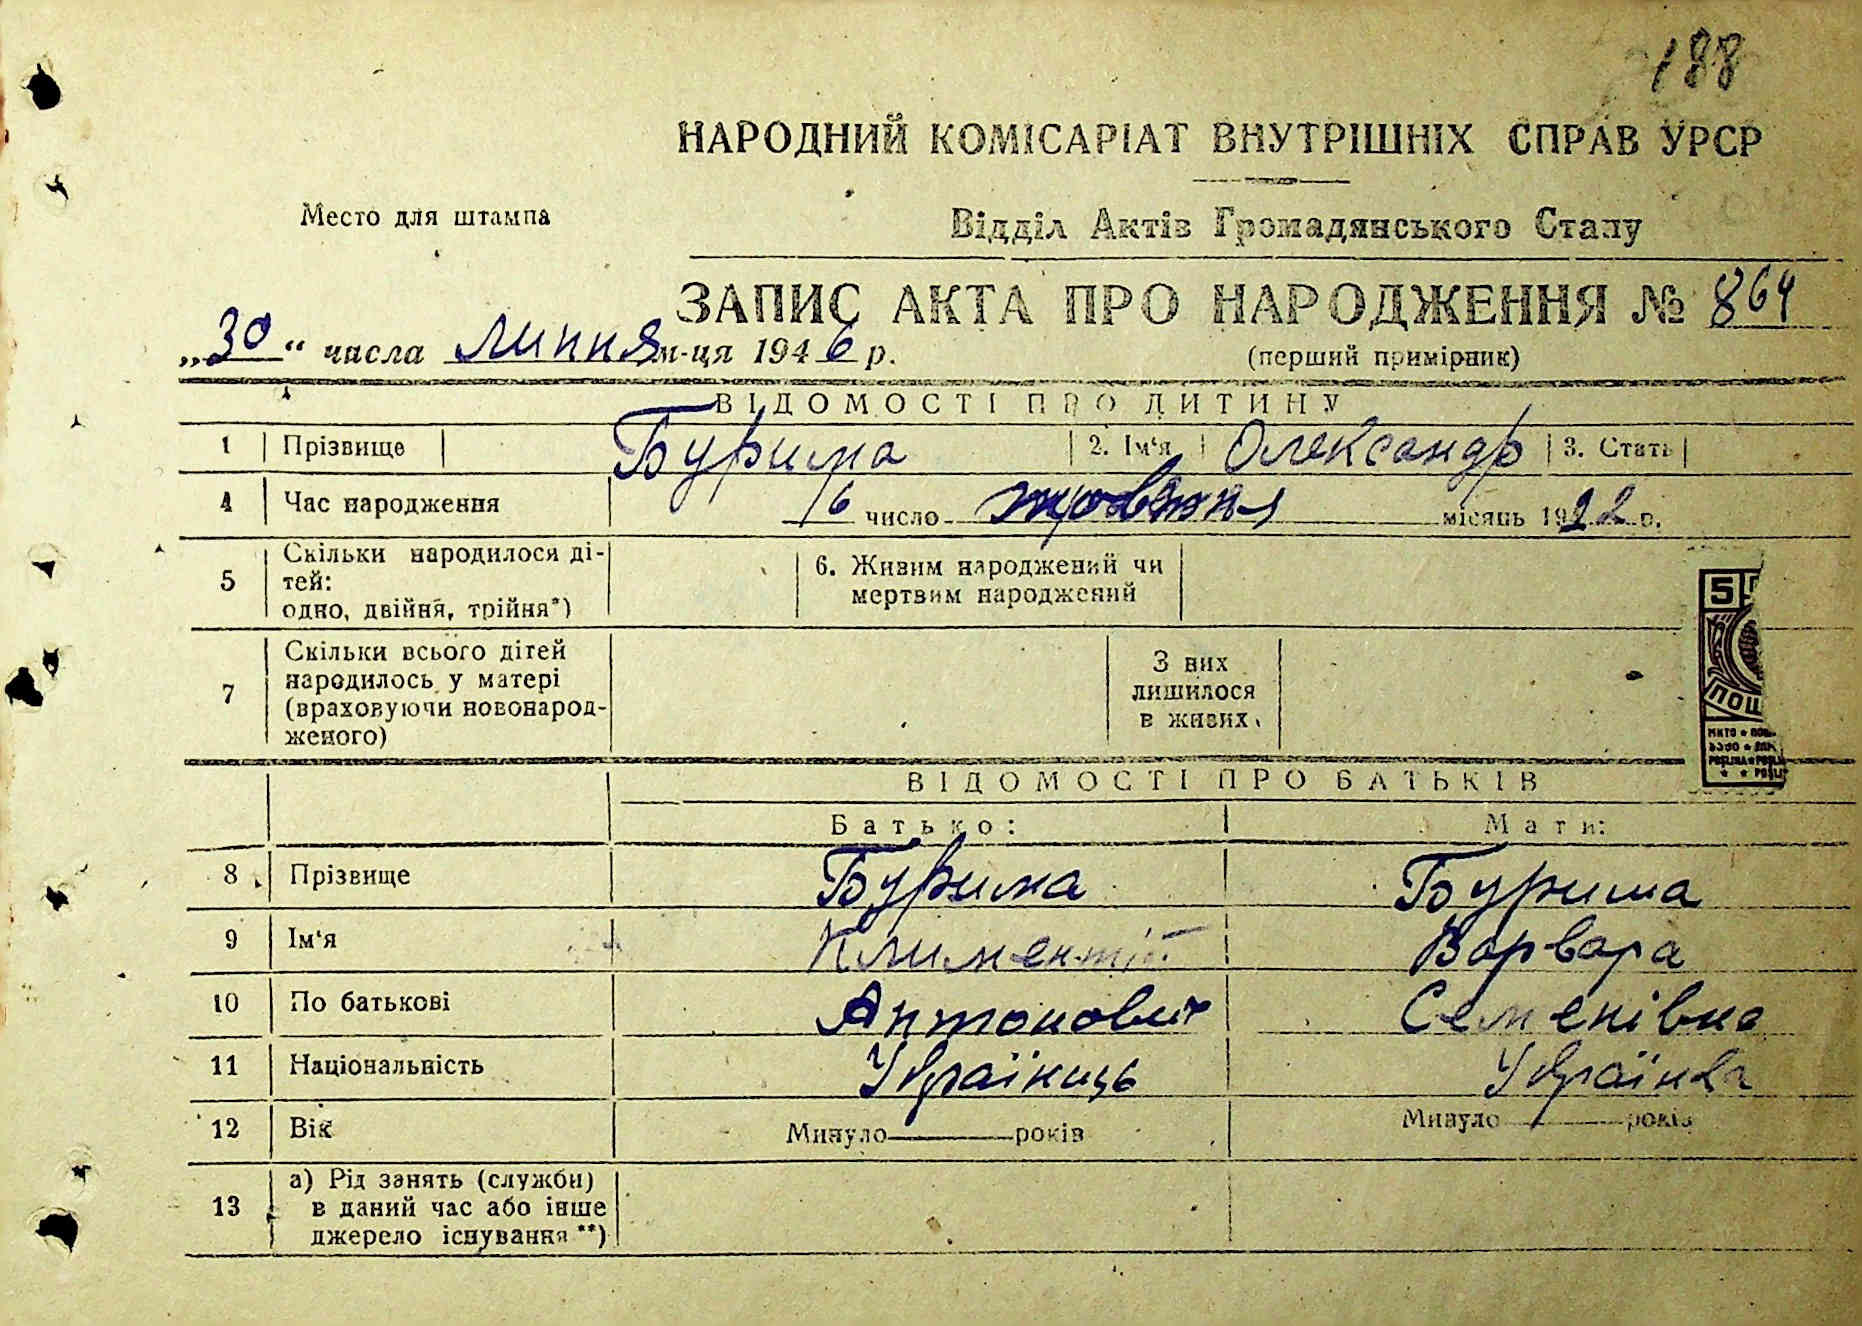 188
НАРОДНИЙ КОМІСАРІАТ ВНУТРІШНІХ СПРАВ УРСР
Место для штампа
Відділ Актів Громадянського Стану
ЗАПИС АКТА ПРО НАРОДЖЕННЯ № 864
„30“ числа липня м-ця 1946 р.
(перший примірник)
ВІДОМОСТІ ПРО ДИТИНУ
1 Прізвище Бурима 2. Ім'я Олександр 3. Стать
4 Час народження 16 число жовтня місяць 1922 р.
5 Скільки народилося ді-
тей:
одно, двійня, трійня*)
6. Живим народжений чи
мертвим народжений
7 Скільки всього дітей
народилось у матері
(враховуючи новонарод-
женого)
З них
лишилося
в живих
5
ПОШ
МИТО
POŠLINA
ВІДОМОСТІ ПРО БАТЬКІВ
Батько: Мати:
8 Прізвище Бурима Бурима
9 Ім'я Климентій Варвара
10 По батькові Антонович Семенівна
11 Національність Українець Українка
12 Вік Минуло років Минуло років
13 а) Рід занять (служби)
в даний час або інше
джерело існування **)